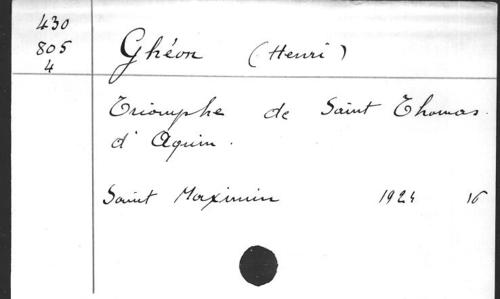 430
805
4
Ghéon (Henri)
Triomphe de Saint Thomas.
d'Aquin.
Saint Maximin 1924 16